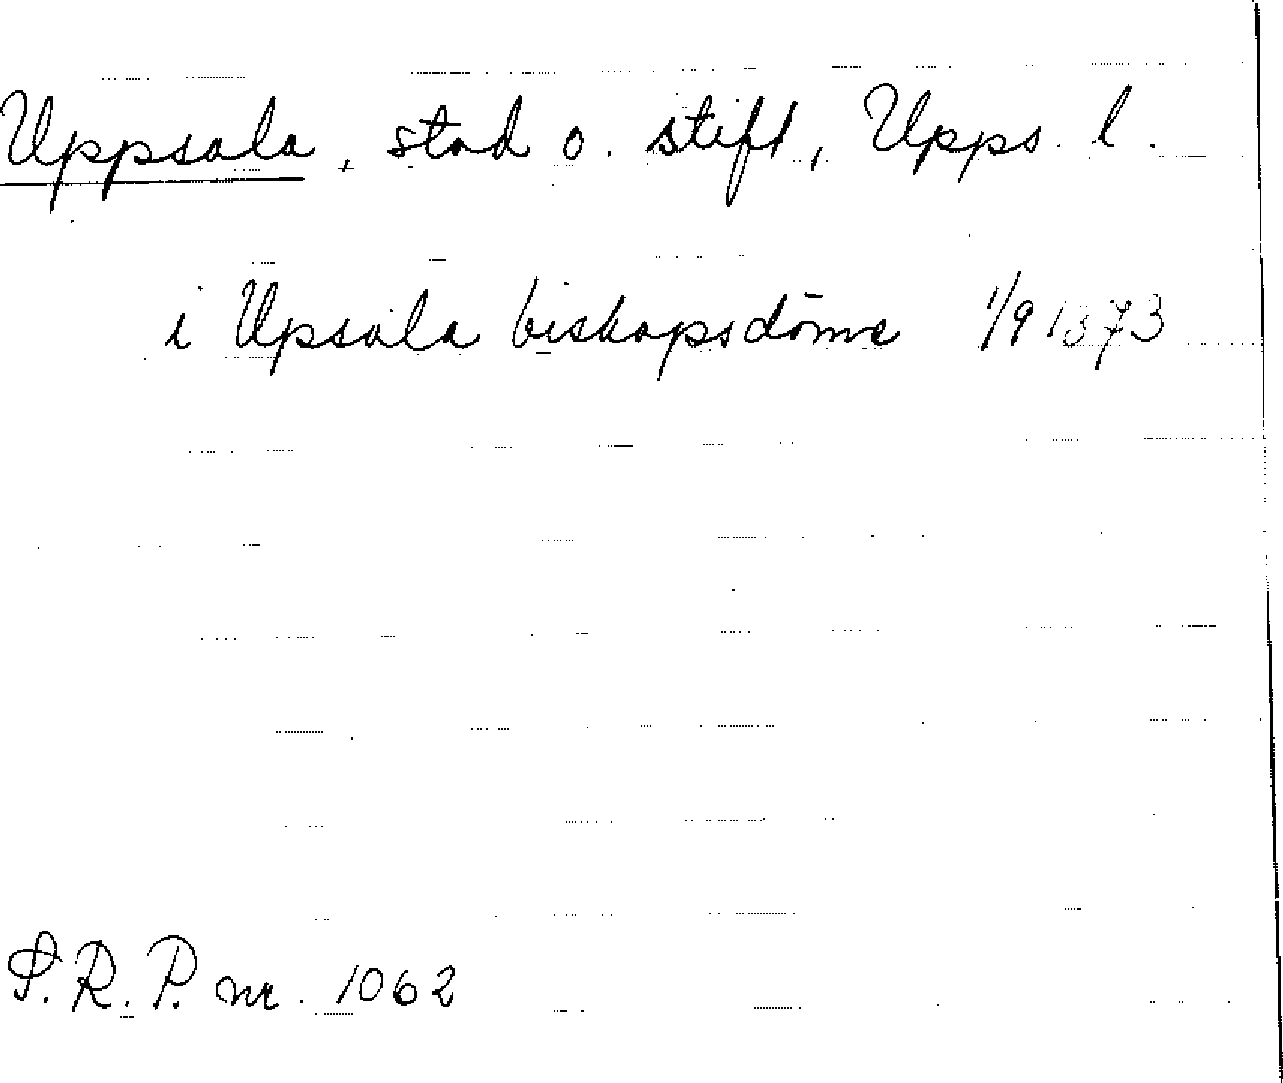 Uppsala, stad o. stift, Upps. l.
i Upsala biskopsdöme 1/9 1373
S.R.P. nr. 1062